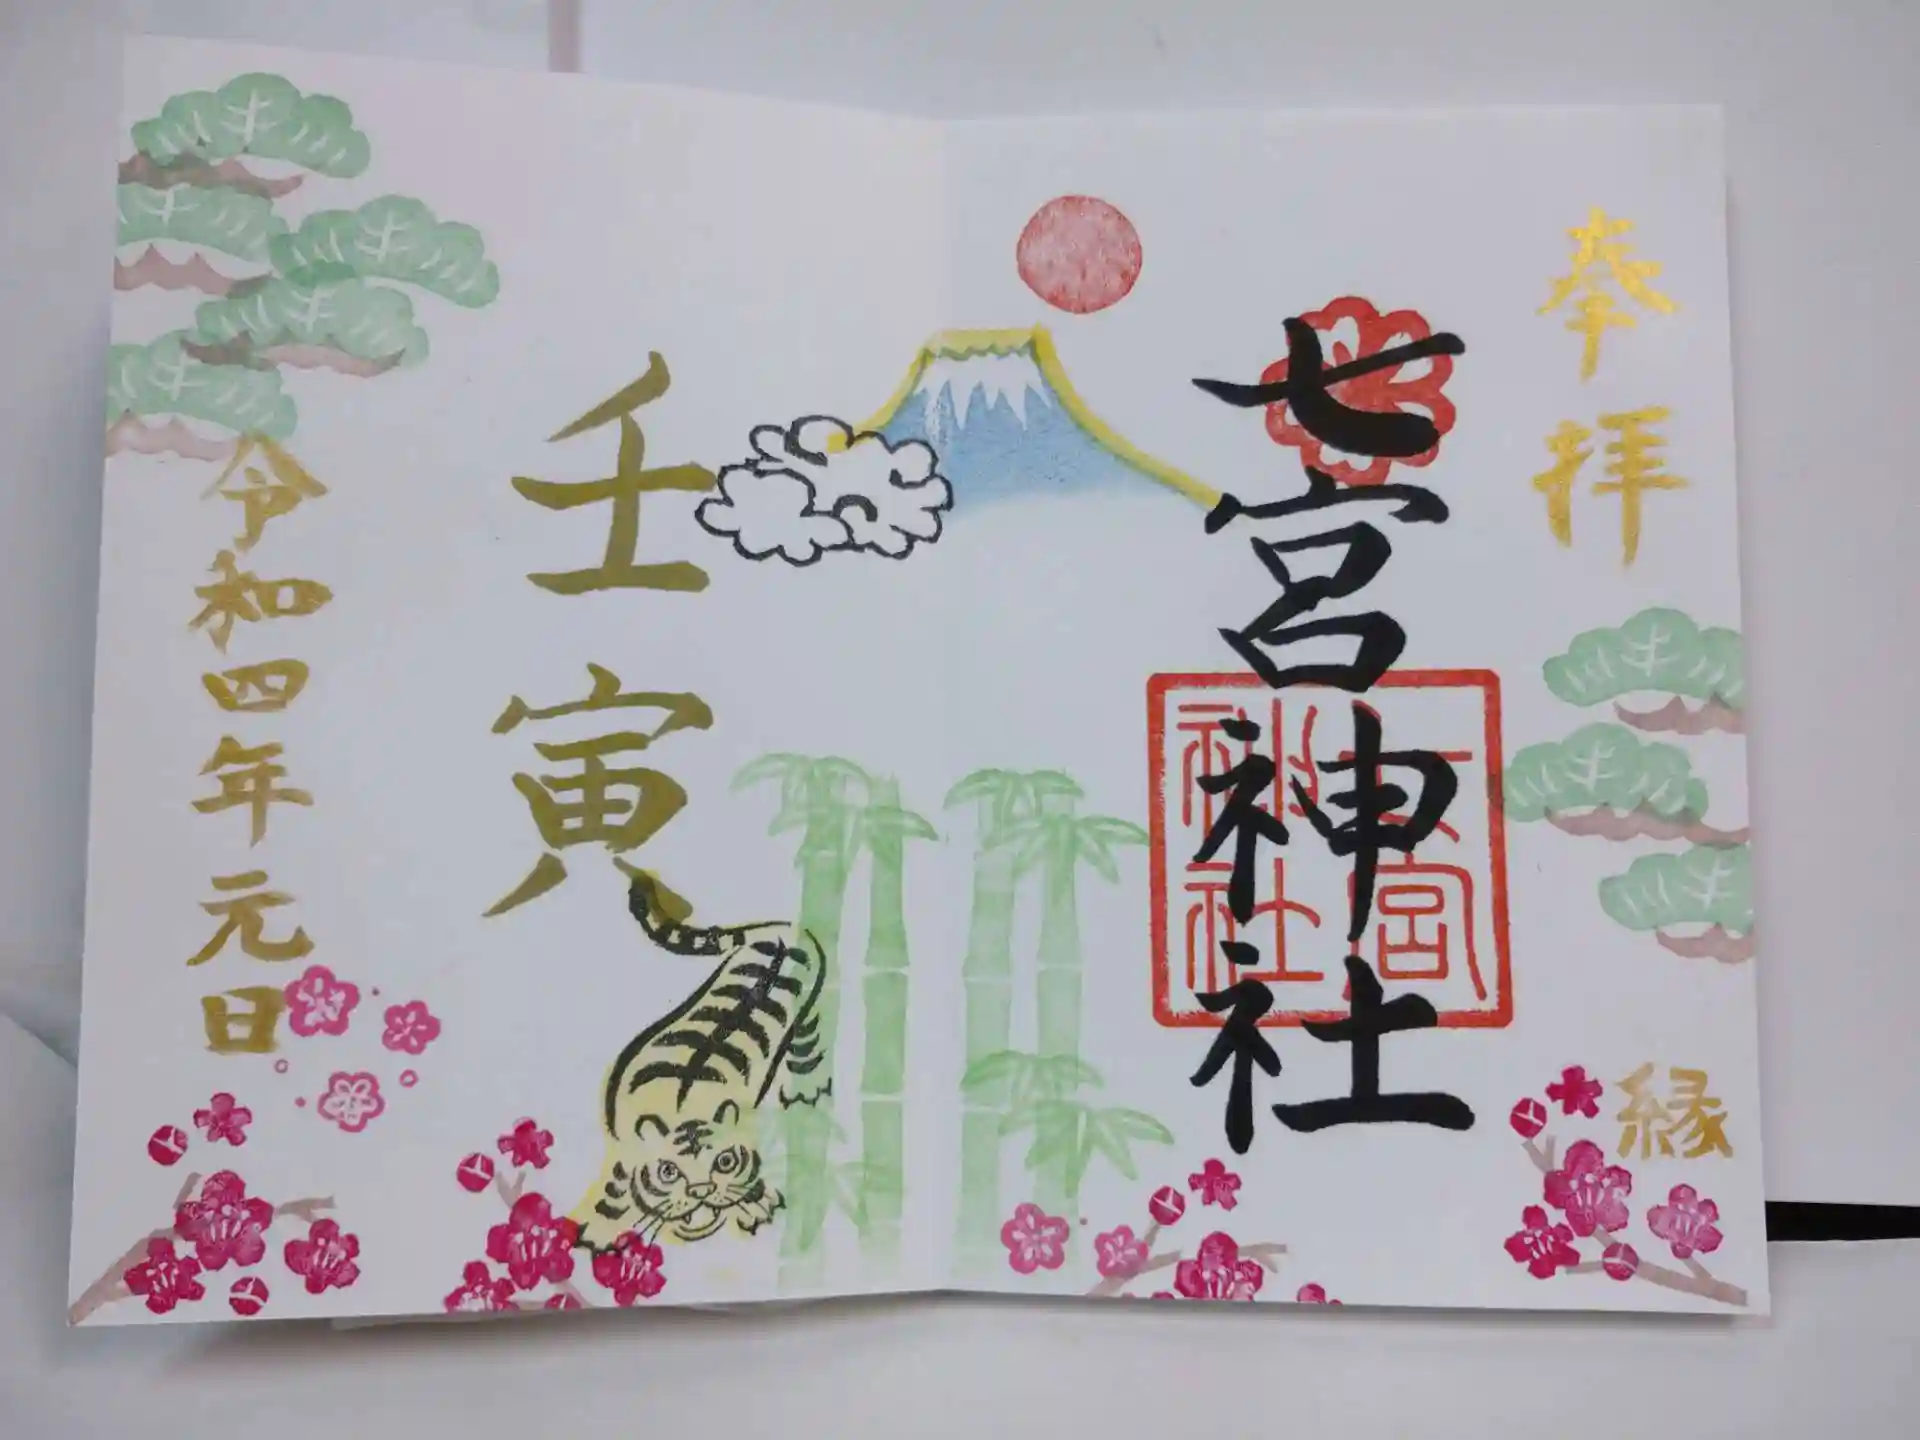 奉拝
七宮神社
七宮神社
縁
壬寅
令和四年元日